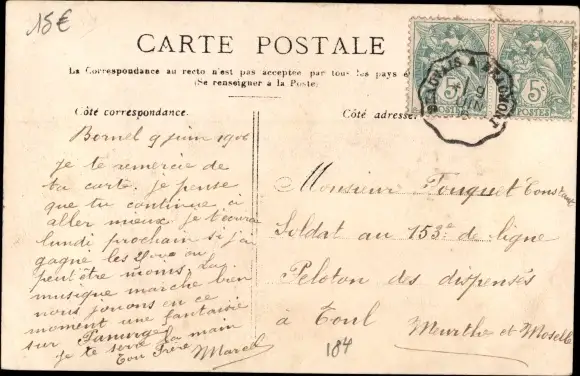 15€
CARTE POSTALE
La Correspondance au recto n'est pas acceptée par tous les pays
(Se renseigner à la Poste)
Côté correspondance.
Côté adresse
BEAUVAIS A BEAUMONT
9
JUIN
5c
POSTES
5c
POSTES
Bornel 9 juin 1906
Je te remercie de
ta carte. je pense
que tu continue à
aller mieux. Je t'écrirai
lundi prochain si j'ai
gagné les 2 ou
peut être moins. La
musique marche bien
nous jouons en ce
moment une fantaisie
sur Panurge
je te serre la main
Ton Frère
Marcel
Monsieur Fouquet Constant
Soldat au 153e de ligne
Peloton des dispensés
à Toul Meurthe et Moselle
184